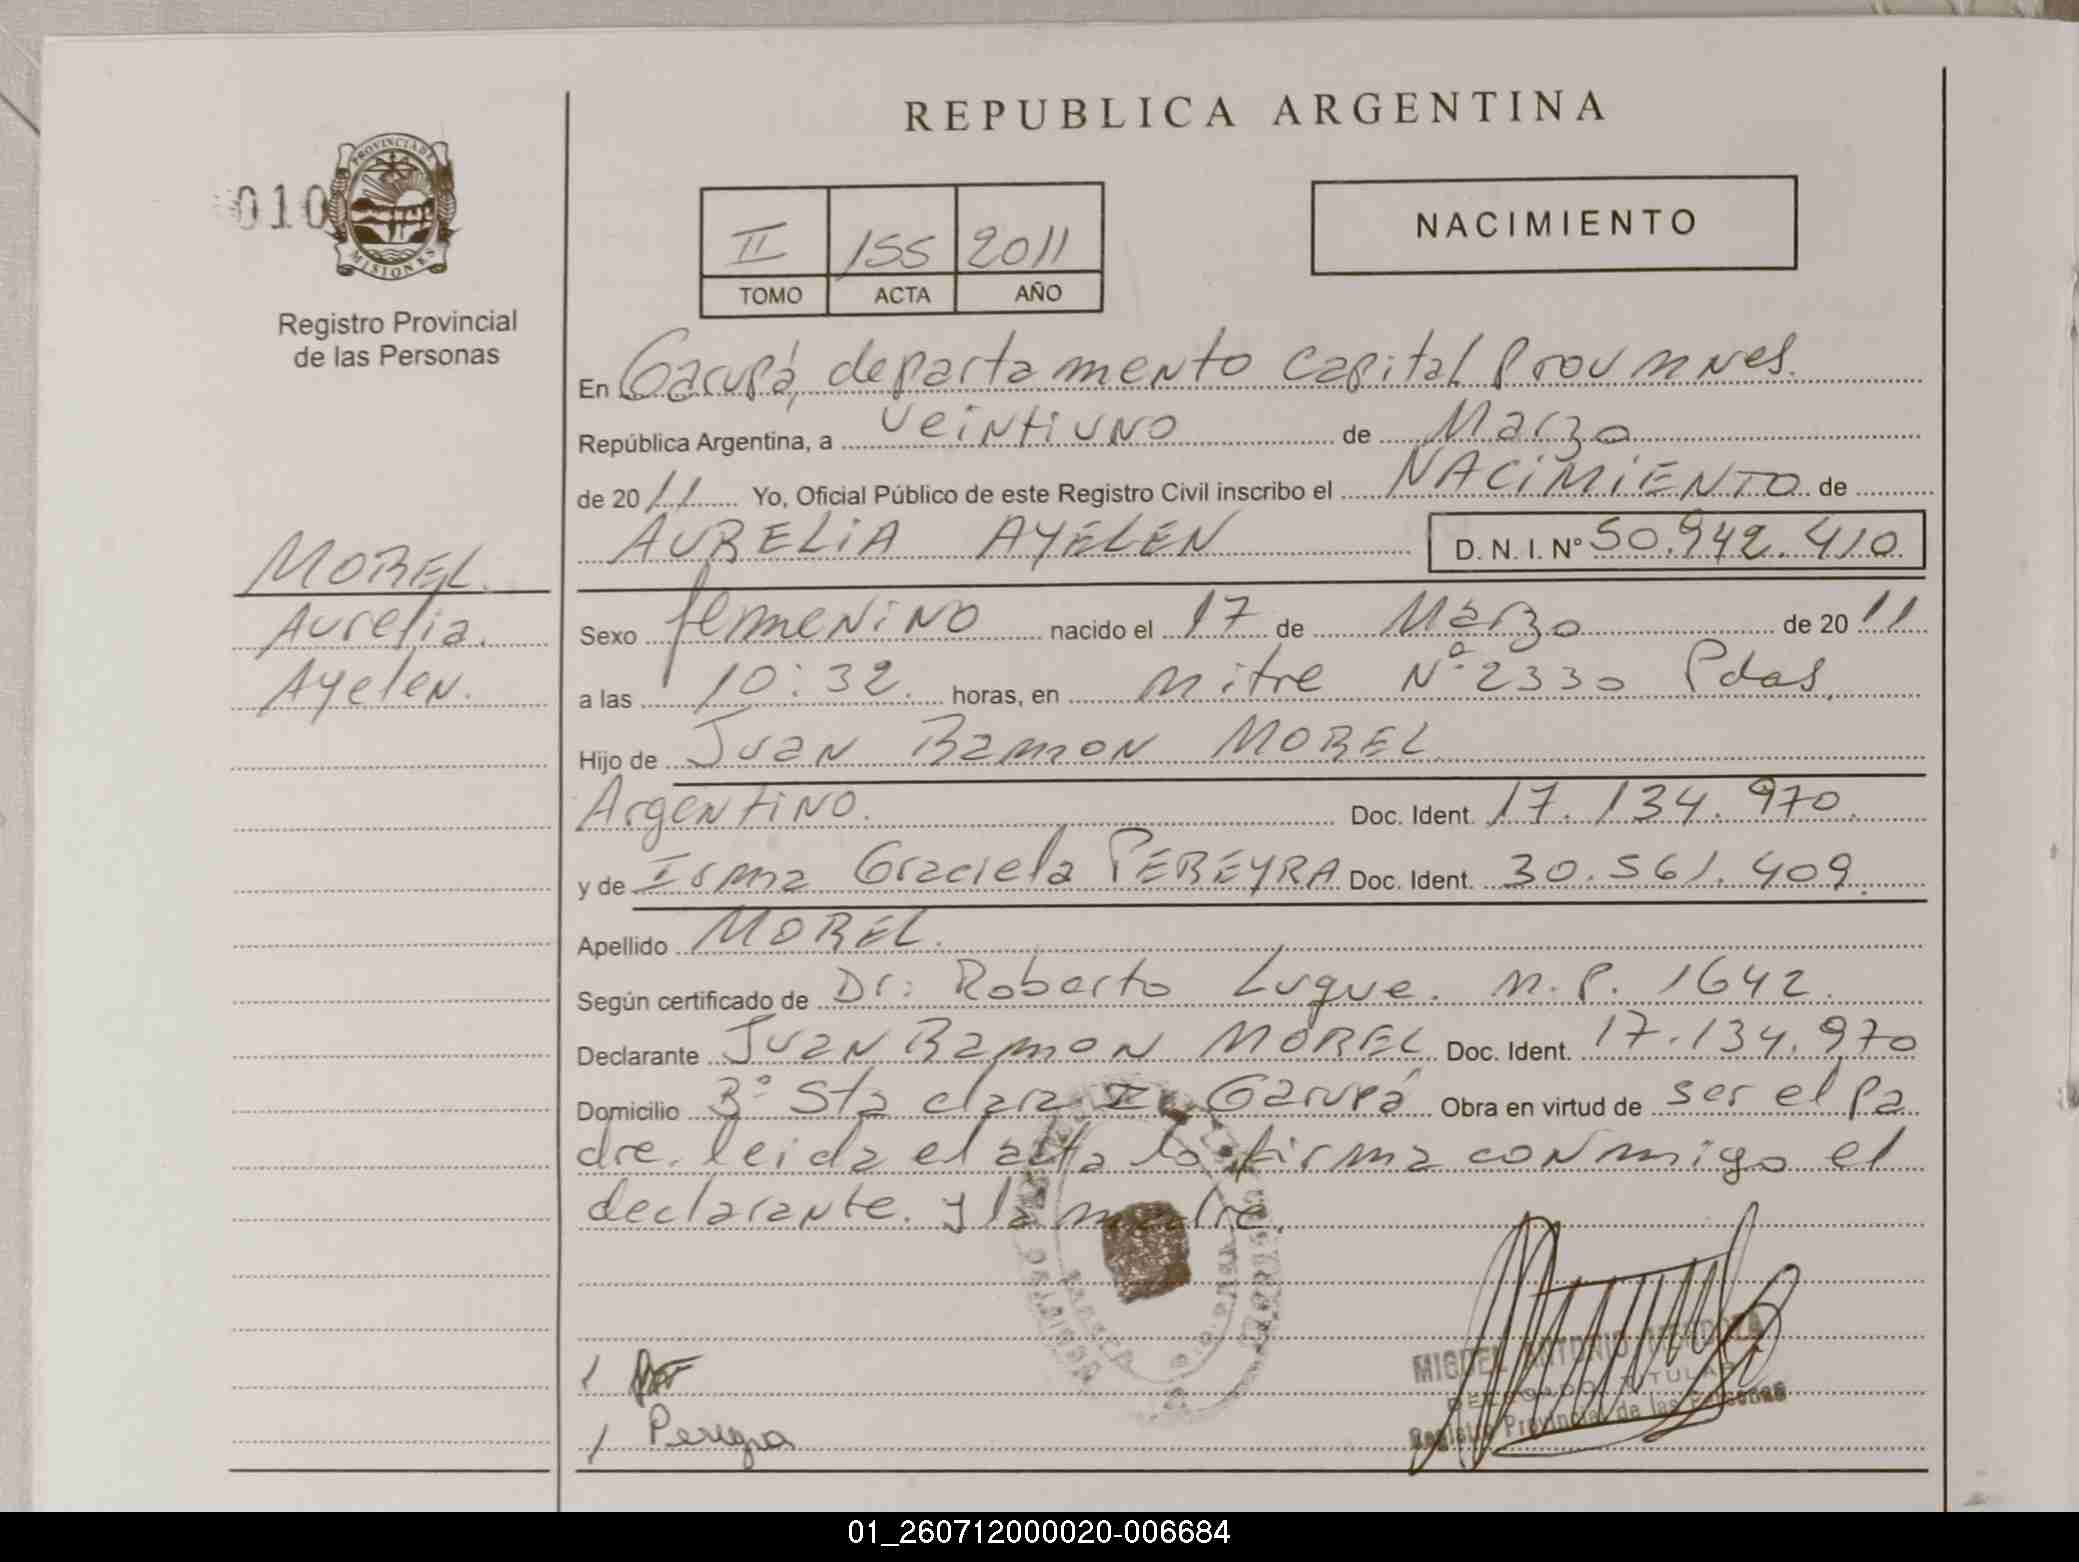 REPUBLICA ARGENTINA
010
PROVINCIA DE
MISIONES
Registro Provincial
de las Personas
II 155 2011
TOMO ACTA AÑO
NACIMIENTO
En Garupá, departamento Capital Prov Mnes.
República Argentina, a veintiuno de Marzo
de 2011 Yo, Oficial Público de este Registro Civil inscribo el NACIMIENTO de
AURELIA AYELEN D. N. I. Nº 50.942.410
MOREL.
Aurelia.
Ayelen.
Sexo femenino nacido el 17 de Marzo de 2011
a las 10:32. horas, en mitre Nº 2330 Pdas,
Hijo de Juan Ramon MOREL
Argentino. Doc. Ident. 17.134.970.
y de Irma Graciela PEREYRA Doc. Ident. 30.561.409.
Apellido MOREL.
Según certificado de Dr: Roberto Luque. M.P. 1642.
Declarante Juan Ramon MOREL Doc. Ident. 17.134.970
Domicilio Bº Sta clara II Garupá Obra en virtud de ser el pa
dre. leida el acta la firma conmigo el
declarante. y la madre.
MIGUEL ANTONIO
DELEGADO TITULAR
Registro Provincial de las Personas
Pereyra
01_260712000020-006684